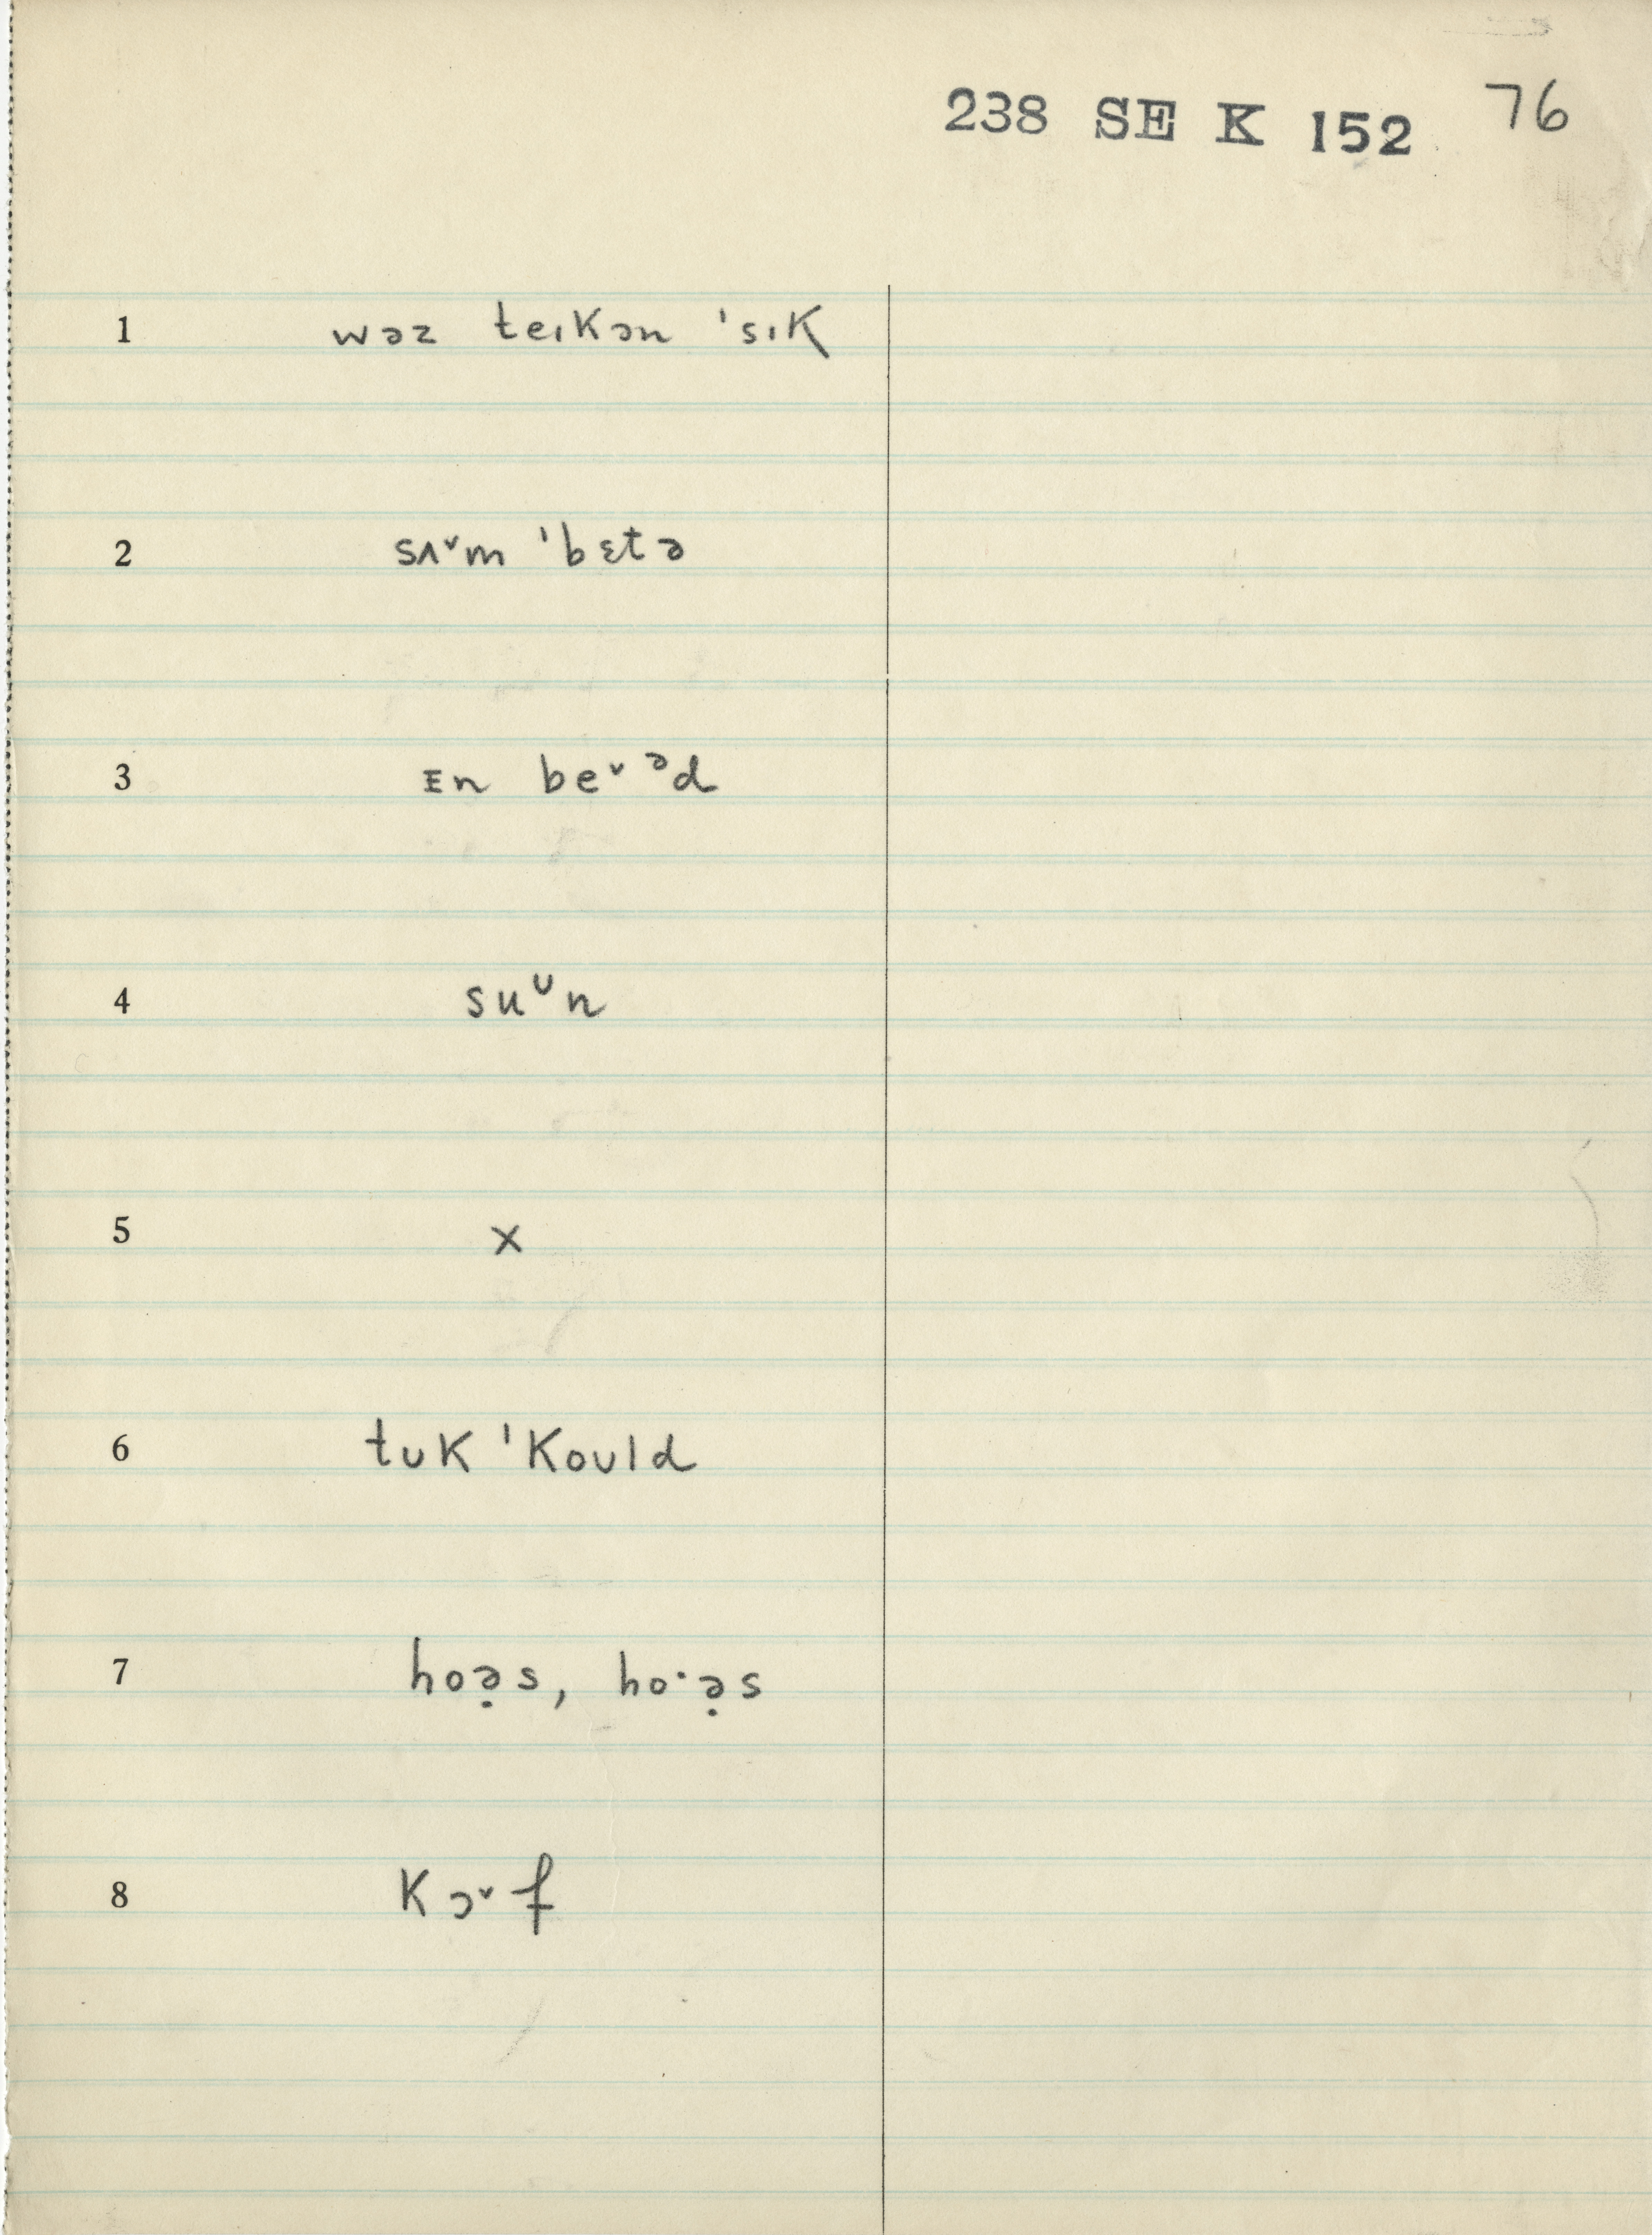 238 SE K 152 76
1 wəz teɪkən ˈsɪk
2 sʌ˅m ˈbɛtə
3 ɪn be˅ᵊd
4 suᶸn
5 x
6 tʊk ˈkoʊld
7 hoə̣s, ho·ə̣s
8 kɔ˅f